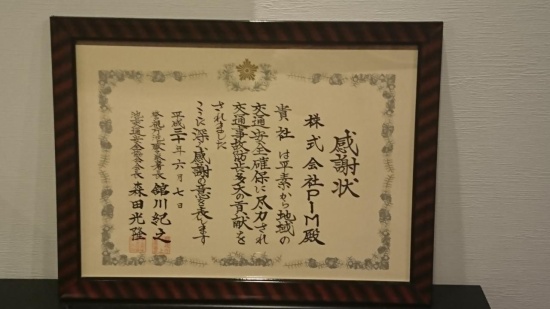 感謝状
株式会社PIM殿
貴社は平素から地域の
交通安全確保に尽力され
交通事故防止に多大の貢献を
されました
ここに深く感謝の意を表します
平成三十年六月七日
警察署長 舘川紀之
交通安全協会会長 森田光隆